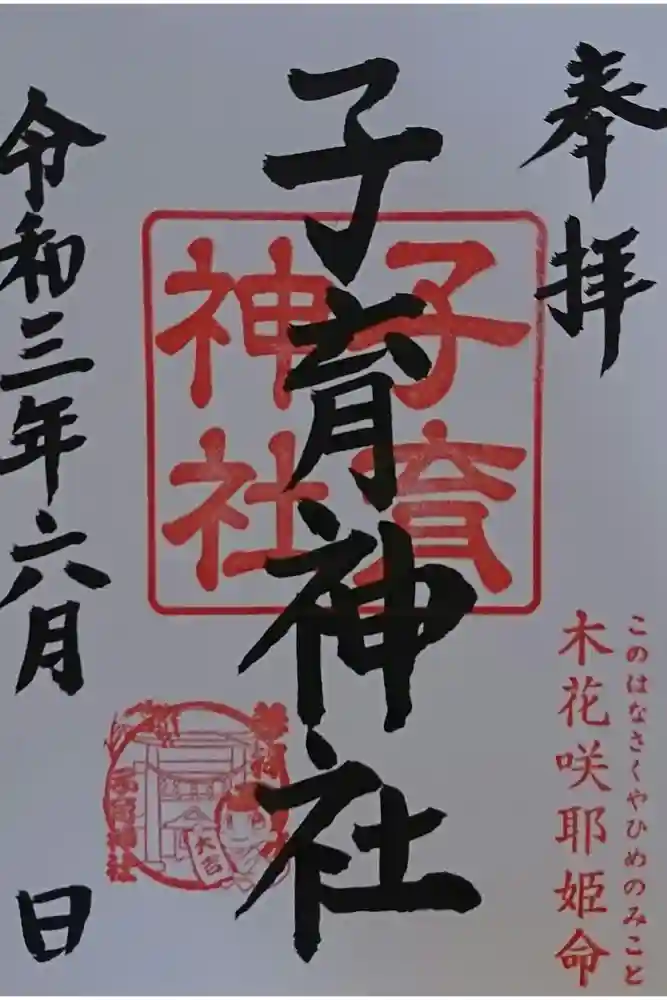 奉拝
このはなさくやひめのみこと
木花咲耶姫命
子育
神社
子育神社
大吉
子育神社
令和三年六月　日